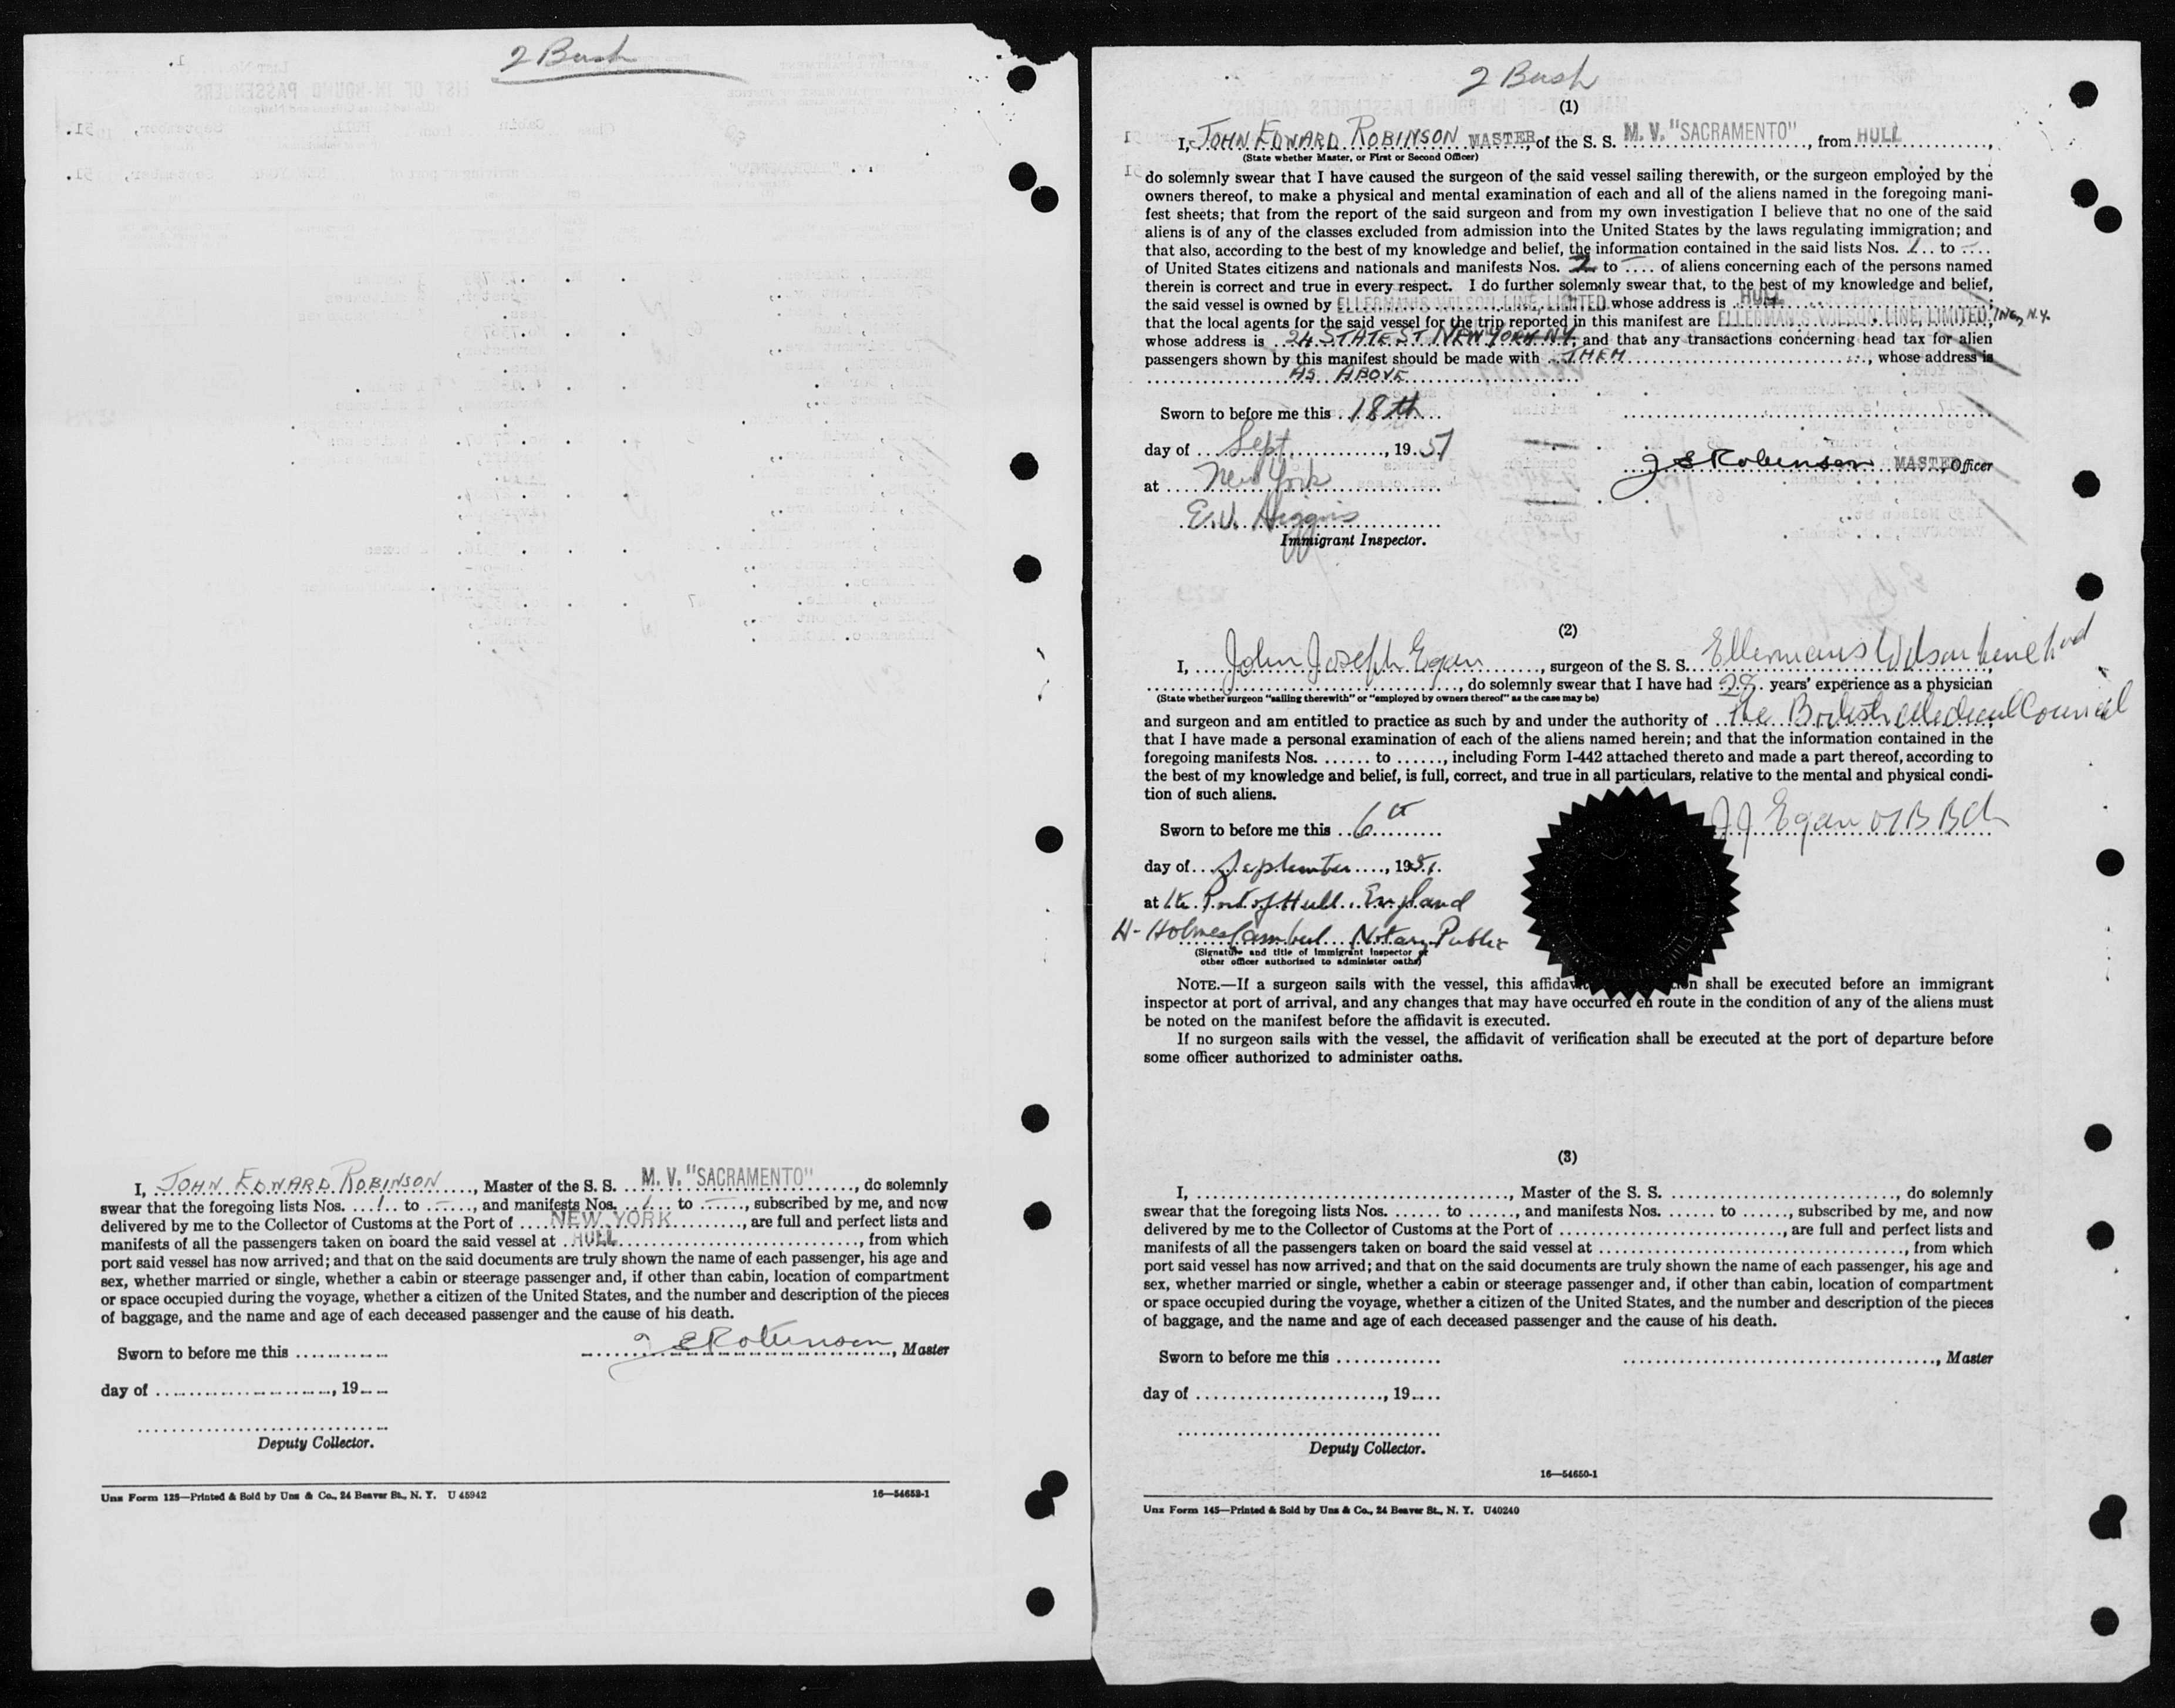 2 Bush
I, JOHN EDWARD ROBINSON, Master of the S. S. M. V. "SACRAMENTO", do solemnly
swear that the foregoing lists Nos. 1 to —, and manifests Nos. 1 to —, subscribed by me, and now
delivered by me to the Collector of Customs at the Port of NEW YORK, are full and perfect lists and
manifests of all the passengers taken on board the said vessel at HULL, from which
port said vessel has now arrived; and that on the said documents are truly shown the name of each passenger, his age and
sex, whether married or single, whether a cabin or steerage passenger and, if other than cabin, location of compartment
or space occupied during the voyage, whether a citizen of the United States, and the number and description of the pieces
of baggage, and the name and age of each deceased passenger and the cause of his death.
Sworn to before me this ............
J E Robinson, Master
day of ............, 19....
Deputy Collector.
Unz Form 125—Printed & Sold by Unz & Co., 24 Beaver St., N. Y. U 45942
16—54652-1
2 Bush
(1)
I, JOHN EDWARD ROBINSON MASTER, of the S. S. M. V. "SACRAMENTO", from HULL,
(State whether Master, or First or Second Officer)
do solemnly swear that I have caused the surgeon of the said vessel sailing therewith, or the surgeon employed by the
owners thereof, to make a physical and mental examination of each and all of the aliens named in the foregoing mani-
fest sheets; that from the report of the said surgeon and from my own investigation I believe that no one of the said
aliens is of any of the classes excluded from admission into the United States by the laws regulating immigration; and
that also, according to the best of my knowledge and belief, the information contained in the said lists Nos. 1 to —
of United States citizens and nationals and manifests Nos. 2 to — of aliens concerning each of the persons named
therein is correct and true in every respect. I do further solemnly swear that, to the best of my knowledge and belief,
the said vessel is owned by ELLERMAN'S WILSON LINE, LIMITED whose address is HULL;
that the local agents for the said vessel for the trip reported in this manifest are ELLERMAN'S WILSON LINE, LIMITED, INC, N.Y.
whose address is 24 STATE ST NEW YORK N.Y.; and that any transactions concerning head tax for alien
passengers shown by this manifest should be made with THEM, whose address is
AS ABOVE
Sworn to before me this 18th
day of Sept, 1951
J E Robinson MASTER, Officer
at New York
E.V. Higgins
Immigrant Inspector.
(2)
I, John Joseph Egan, surgeon of the S. S. Ellermans Wilson Line Ltd
............, do solemnly swear that I have had 28 years' experience as a physician
(State whether surgeon "sailing therewith" or "employed by owners thereof" as the case may be)
and surgeon and am entitled to practice as such by and under the authority of the British Medical Council,
that I have made a personal examination of each of the aliens named herein; and that the information contained in the
foregoing manifests Nos. ...... to ......, including Form I-442 attached thereto and made a part thereof, according to
the best of my knowledge and belief, is full, correct, and true in all particulars, relative to the mental and physical condi-
tion of such aliens.
Sworn to before me this 6th
J J Egan MB BCh
day of September, 1951.
at the Port of Hull England
H. Holmes Notary Public
(Signature and title of Immigrant Inspector or
other officer authorized to administer oaths)
NOTE.—If a surgeon sails with the vessel, this shall be executed before an immigrant
inspector at port of arrival, and any changes that may have occurred en route in the condition of any of the aliens must
be noted on the manifest before the affidavit is executed.
If no surgeon sails with the vessel, the affidavit of verification shall be executed at the port of departure before
some officer authorized to administer oaths.
(3)
I, ............, Master of the S. S. ............, do solemnly
swear that the foregoing lists Nos. ...... to ......, and manifests Nos. ...... to ......, subscribed by me, and now
delivered by me to the Collector of Customs at the Port of ............, are full and perfect lists and
manifests of all the passengers taken on board the said vessel at ............, from which
port said vessel has now arrived; and that on the said documents are truly shown the name of each passenger, his age and
sex, whether married or single, whether a cabin or steerage passenger and, if other than cabin, location of compartment
or space occupied during the voyage, whether a citizen of the United States, and the number and description of the pieces
of baggage, and the name and age of each deceased passenger and the cause of his death.
Sworn to before me this ............
............, Master
day of ............, 19....
Deputy Collector.
16—54650-1
Unz Form 145—Printed & Sold by Unz & Co., 24 Beaver St., N. Y. U40240